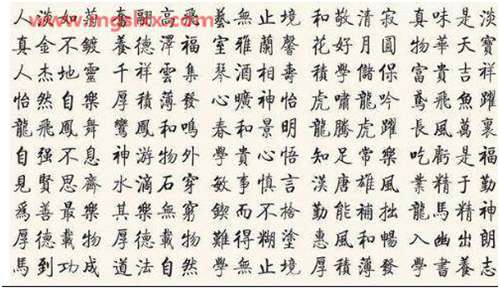 人淡如菊 奮翮高飛 藝無止境 和敬清寂 真味是淡
真金不鍍 養德澤福 室雅蘭馨 花好月圓 物華天寶
人杰地靈 千祥雲集 琴 相 積學儲 富貴吉祥
怡然自樂 厚積薄發 心曠神怡 虎嘯龍吟 鳶飛魚躍
龍飛鳳舞 鸞鳳和鳴 春和景明 龍騰虎躍 長風萬裏
自强不息 神游物外 學貴心悟 知足常樂 吃虧是福
見賢思齊 水滴石穿 敏事慎言 漢唐雄風 業精于勤
爲善最樂 其樂無窮 鍥而不捨 勤能補拙 馬精神
厚德載物 厚德載物 難得糊塗 惠風和暢 幽出朗
馬到功成 道法自然 學無止境 厚積薄發 學書養志